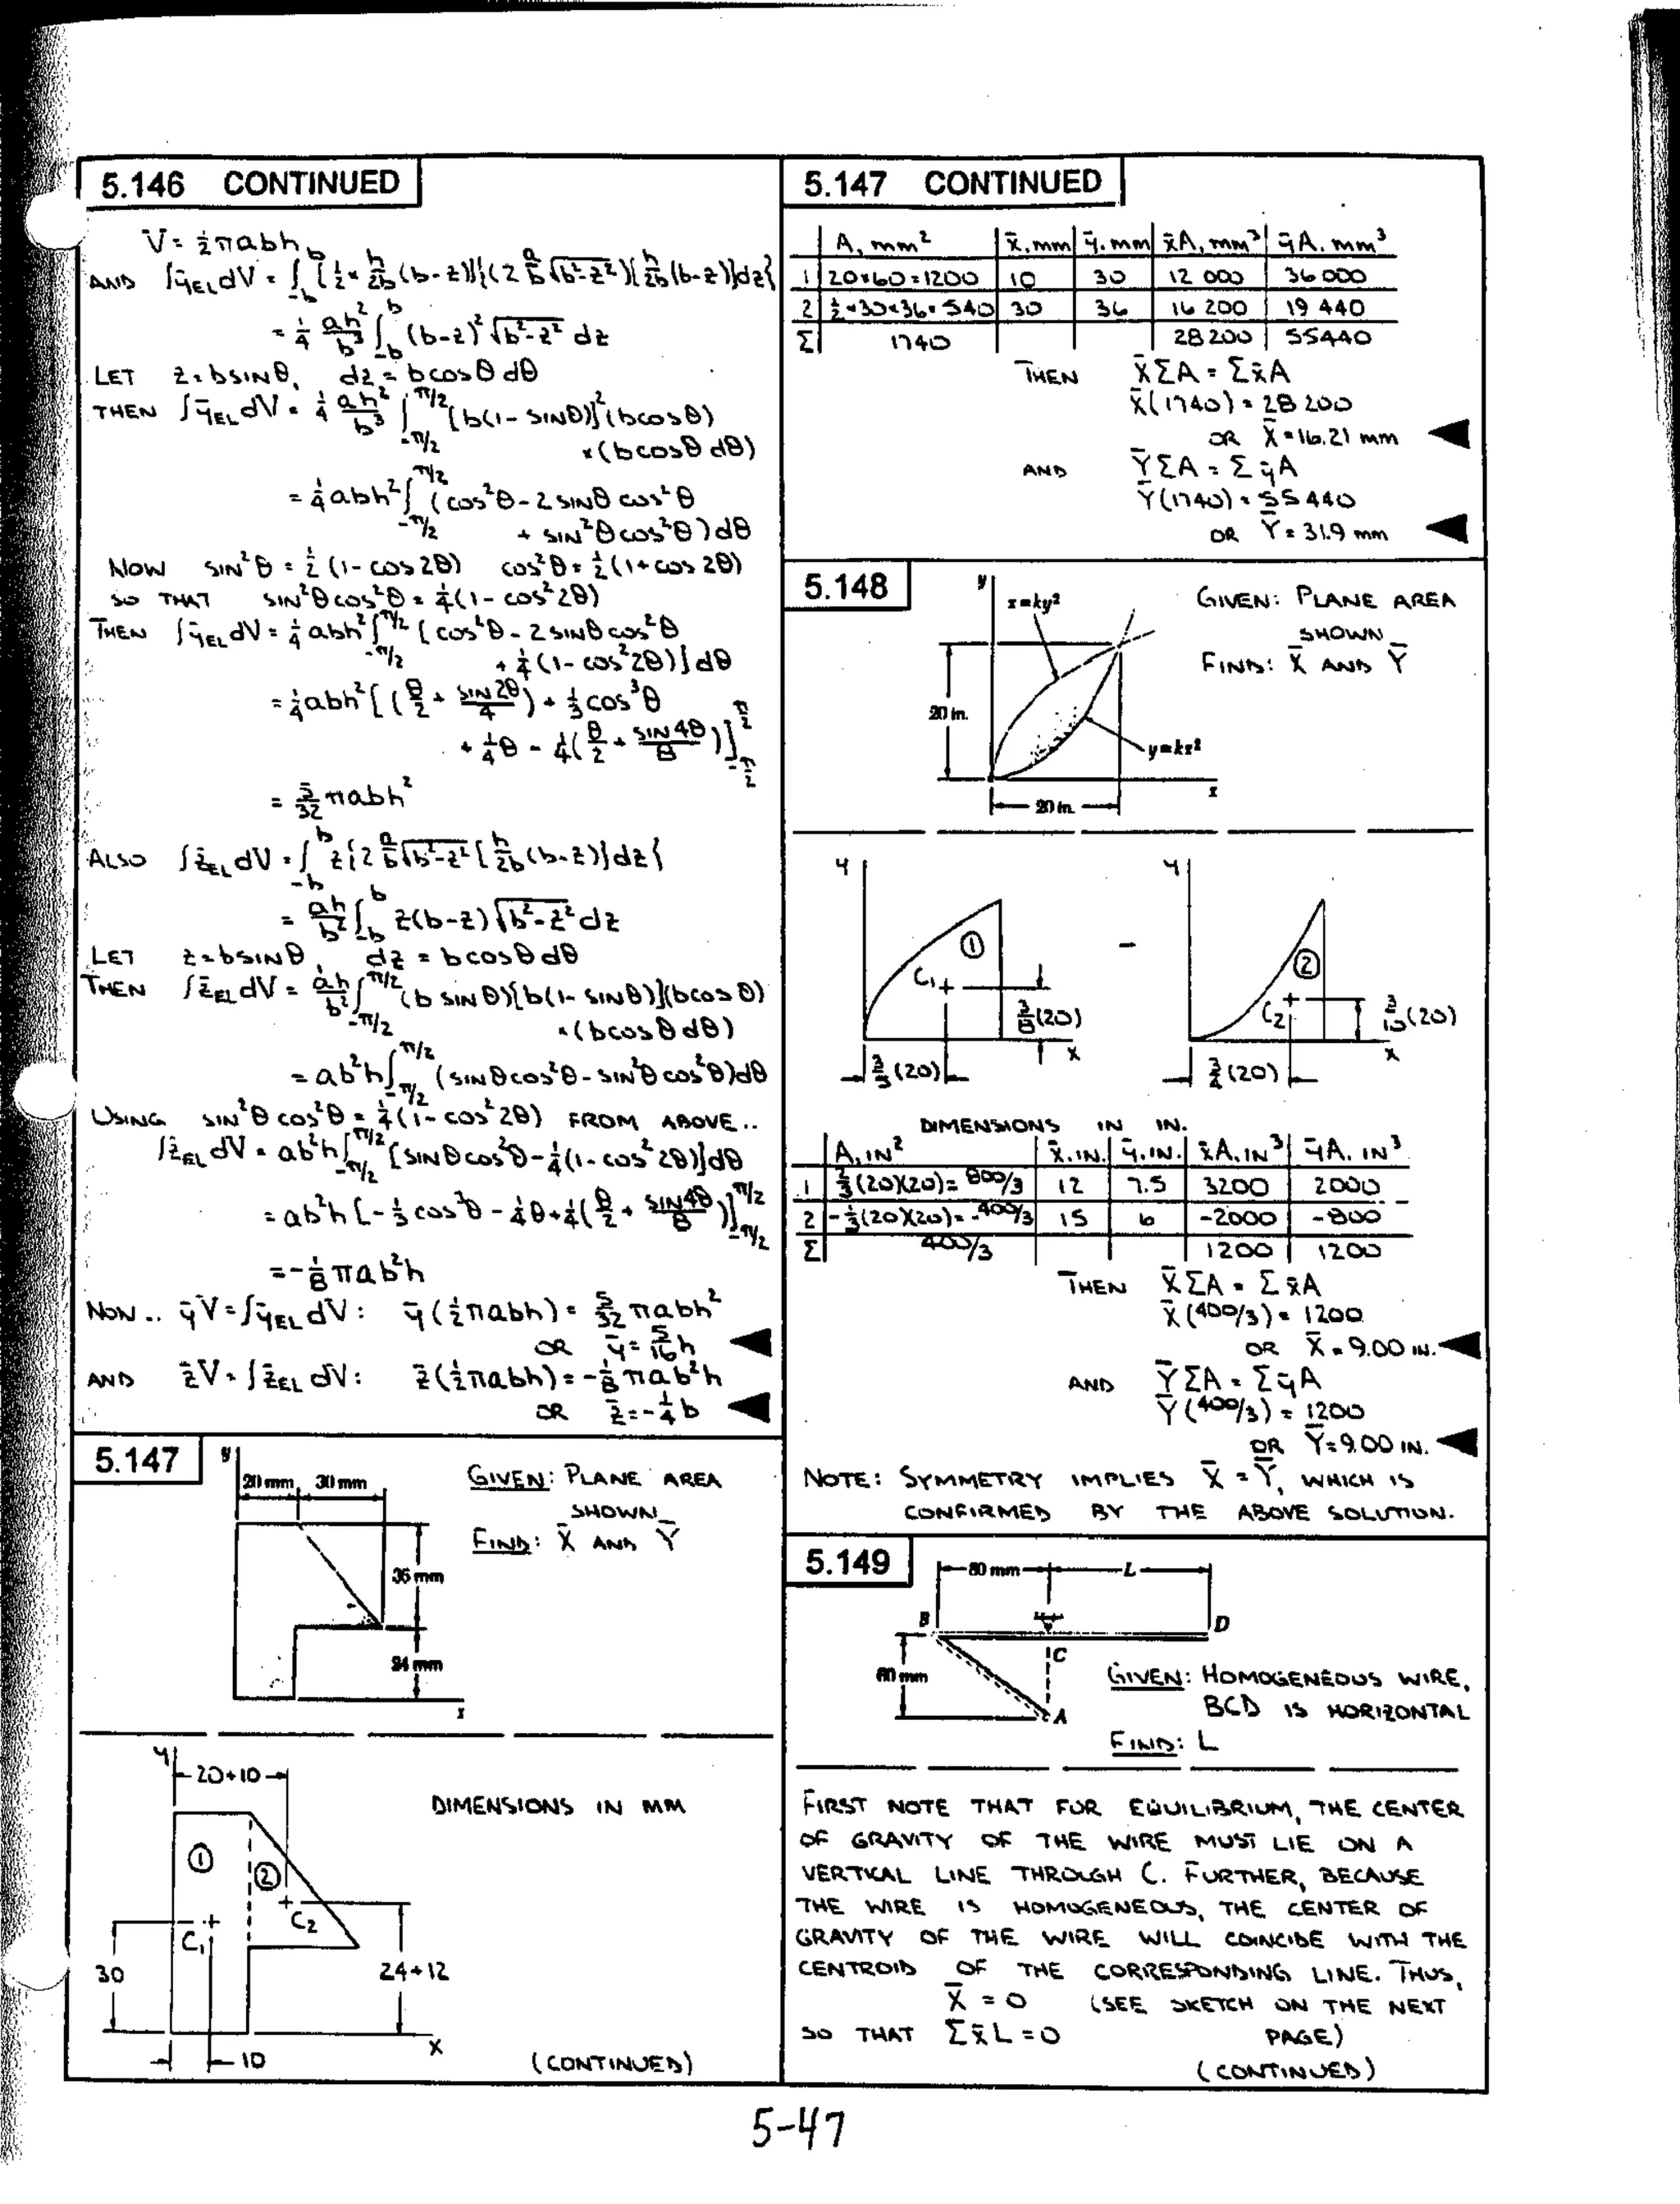 5.146 CONTINUED
V = ½πabh
AND ∫ȳ_EL dV = ∫_{-b}^{b} [½ × h/2b (b-z)]{(2 a/b √(b²-z²)) [h/2b (b-z)] dz}
= ¼ ah²/b³ ∫_{-b}^{b} (b-z)² √(b²-z²) dz
LET z = b SIN θ, dz = b cos θ dθ
THEN ∫ȳ_EL dV = ¼ ah²/b³ ∫_{-π/2}^{π/2} [b(1- SIN θ)]² (b cos θ)
× (b cos θ dθ)
= ¼ abh² ∫_{-π/2}^{π/2} (cos²θ - 2 SIN θ cos²θ
+ SIN²θ cos²θ) dθ
NOW SIN²θ = ½ (1- cos 2θ) cos²θ = ½ (1+ cos 2θ)
SO THAT SIN²θ cos²θ = ¼ (1- cos²2θ)
THEN ∫ȳ_EL dV = ¼ abh² ∫_{-π/2}^{π/2} [cos²θ - 2 SIN θ cos²θ
+ ¼ (1- cos²2θ)] dθ
= ¼ abh² [(θ/2 + SIN 2θ/4) + ⅓ cos³θ
+ ¼θ - ¼(θ/2 + SIN 4θ/8)]_{-π/2}^{π/2}
= 5/32 πabh²
ALSO ∫z̄_EL dV = ∫_{-b}^{b} z{2 a/b √(b²-z²) [h/2b (b-z)] dz}
= ah/b² ∫_{-b}^{b} z(b-z) √(b²-z²) dz
LET z = b SIN θ, dz = b cos θ dθ
THEN ∫z̄_EL dV = ah/b² ∫_{-π/2}^{π/2} (b SIN θ)[b(1- SIN θ)](b cos θ)
× (b cos θ dθ)
= ab²h ∫_{-π/2}^{π/2} (SIN θ cos²θ - SIN²θ cos²θ) dθ
USING SIN²θ cos²θ = ¼ (1- cos²2θ) FROM ABOVE ..
∫z̄_EL dV = ab²h ∫_{-π/2}^{π/2} [SIN θ cos²θ - ¼ (1- cos²2θ)] dθ
= ab²h [-⅓ cos³θ - ¼θ + ¼(θ/2 + SIN 4θ/8)]_{-π/2}^{π/2}
= -⅛ πab²h
NOW .. ȳV = ∫ȳ_EL dV: ȳ(½πabh) = 5/32 πabh²
OR ȳ = 5/16 h ◀
AND z̄V = ∫z̄_EL dV: z̄(½πabh) = -⅛ πab²h
OR z̄ = -¼ b ◀
5.147
y
20 mm 30 mm
36 mm
24 mm
x
GIVEN: PLANE AREA
SHOWN
FIND: X̄ AND Ȳ
y
20+10
DIMENSIONS IN MM
① ②
C₁ C₂
30
24+12
x
10
(CONTINUED)
5.147 CONTINUED
A, mm² x̄, mm ȳ, mm x̄A, mm³ ȳA, mm³
1 20×60=1200 10 30 12 000 36 000
2 ½×30×36=540 30 36 16 200 19 440
Σ 1740 28 200 55440
THEN X̄ΣA = Σx̄A
X̄(1740) = 28 200
OR X̄ = 16.21 mm ◀
AND ȲΣA = ΣȳA
Ȳ(1740) = 55 440
OR Ȳ = 31.9 mm ◀
5.148
y
x = ky²
20 in.
y = kx²
x
20 in.
GIVEN: PLANE AREA
SHOWN
FIND: X̄ AND Ȳ
y
①
C₁
⅜(20)
x
⅗(20)
−
y
②
C₂
3/10 (20)
x
¾(20)
DIMENSIONS IN IN.
A, IN² x̄, IN. ȳ, IN. x̄A, IN³ ȳA, IN³
1 ⅔(20)(20) = 800/3 12 7.5 3200 2000
2 -⅓(20)(20) = -400/3 15 6 -2000 -800
Σ 400/3 1200 1200
THEN X̄ΣA = Σx̄A
X̄(400/3) = 1200
OR X̄ = 9.00 IN. ◀
AND ȲΣA = ΣȳA
Ȳ(400/3) = 1200
OR Ȳ = 9.00 IN. ◀
NOTE: SYMMETRY IMPLIES X̄ = Ȳ, WHICH IS
CONFIRMED BY THE ABOVE SOLUTION.
5.149
80 mm L
B D
C
60 mm
A
GIVEN: HOMOGENEOUS WIRE,
BCD IS HORIZONTAL
FIND: L
FIRST NOTE THAT FOR EQUILIBRIUM, THE CENTER
OF GRAVITY OF THE WIRE MUST LIE ON A
VERTICAL LINE THROUGH C. FURTHER, BECAUSE
THE WIRE IS HOMOGENEOUS, THE CENTER OF
GRAVITY OF THE WIRE WILL COINCIDE WITH THE
CENTROID OF THE CORRESPONDING LINE. THUS,
X̄ = 0 (SEE SKETCH ON THE NEXT
SO THAT Σx̄L = 0 PAGE)
(CONTINUED)
5-47